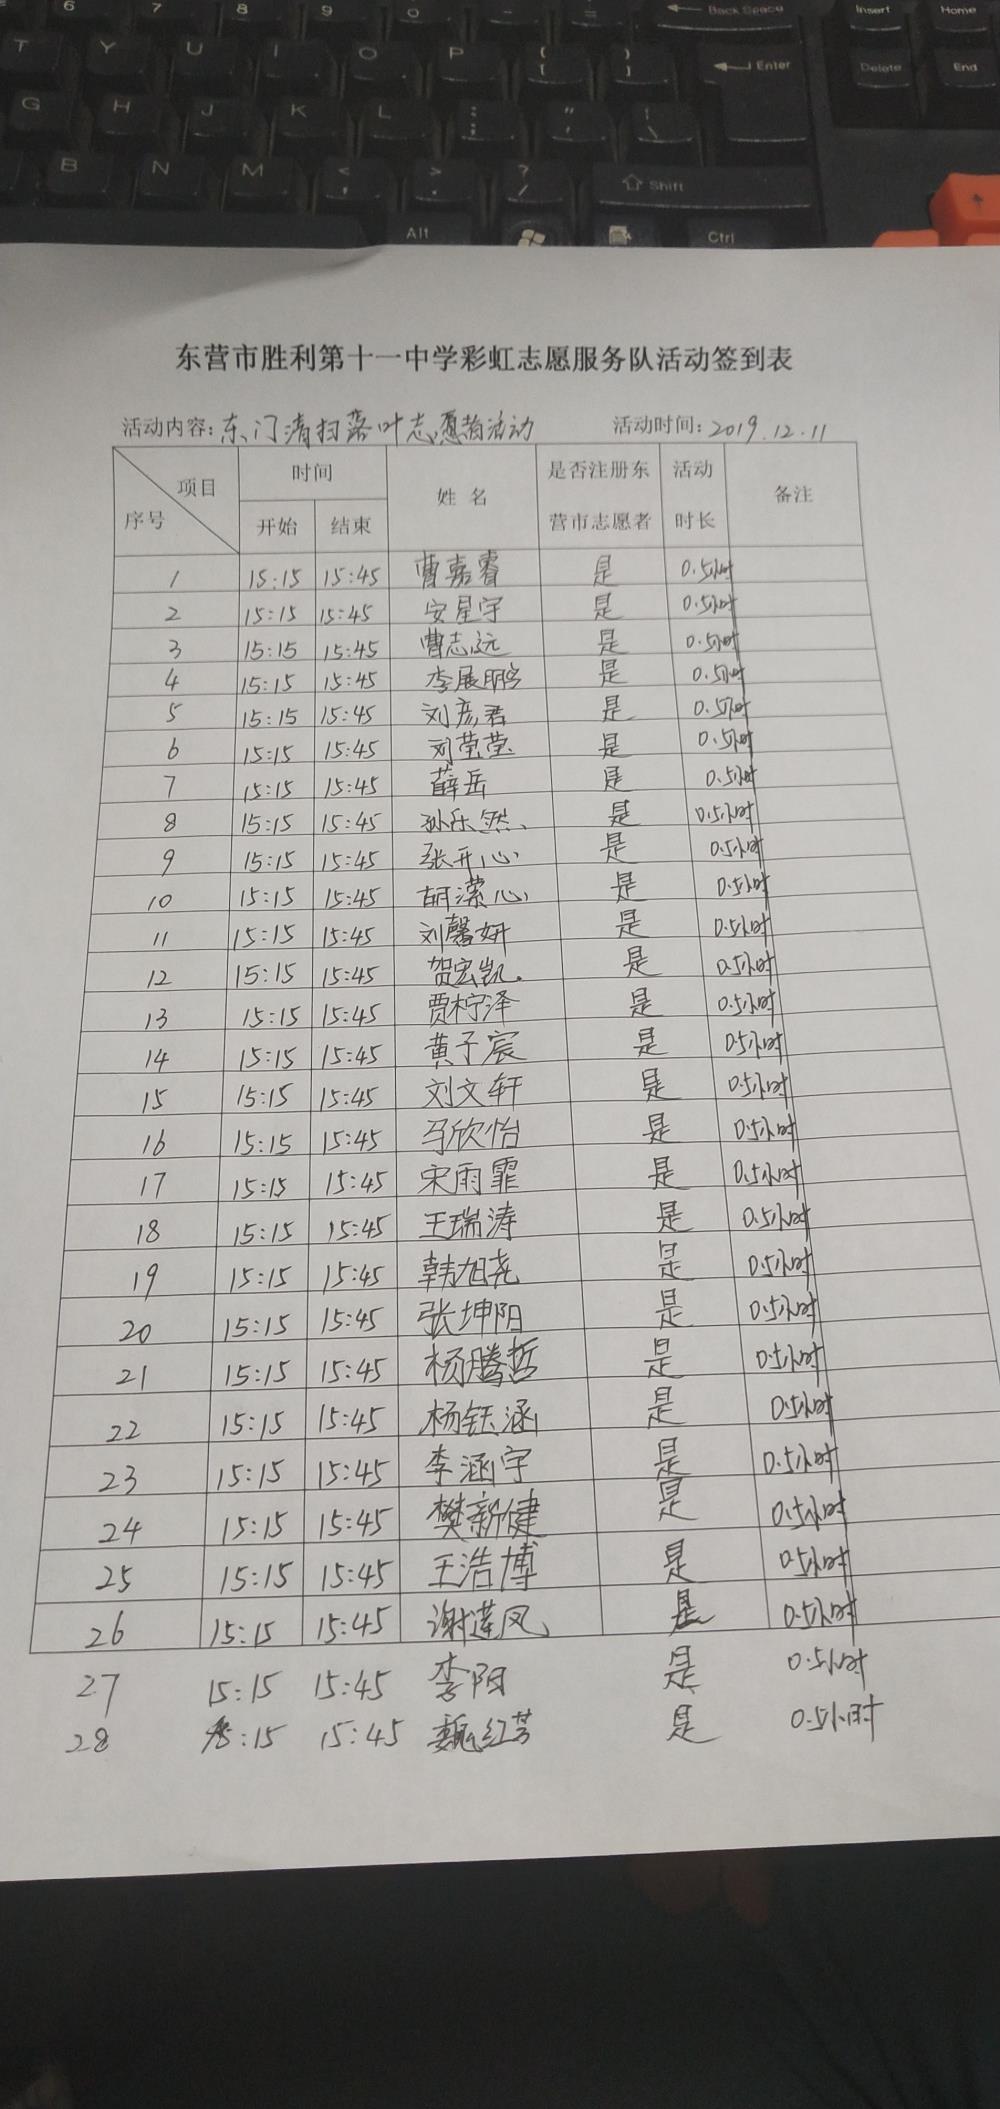 6 7 8 9 0 - = Back Space Insert Home
T Y U I O P { [ } ] Enter Delete End
G H J K L : ; " ' | \
B N M < , > . ? / Shift
Alt Ctrl
东营市胜利第十一中学彩虹志愿服务队活动签到表
活动内容:东门清扫落叶志愿者活动 活动时间:2019.12.11
项目 序号 时间 开始 结束 姓名 是否注册东营市志愿者 活动时长 备注
1 15:15 15:45 曹嘉睿 是 0.5小时
2 15:15 15:45 安星宇 是 0.5小时
3 15:15 15:45 曹志远 是 0.5小时
4 15:15 15:45 李展鹏 是 0.5小时
5 15:15 15:45 刘彦君 是 0.5小时
6 15:15 15:45 刘莹莹 是 0.5小时
7 15:15 15:45 薛岳 是 0.5小时
8 15:15 15:45 孙乐然 是 0.5小时
9 15:15 15:45 张开心 是 0.5小时
10 15:15 15:45 胡潆心 是 0.5小时
11 15:15 15:45 刘馨妍 是 0.5小时
12 15:15 15:45 贺宏凯 是 0.5小时
13 15:15 15:45 贾柠泽 是 0.5小时
14 15:15 15:45 黄子宸 是 0.5小时
15 15:15 15:45 刘文轩 是 0.5小时
16 15:15 15:45 马欣怡 是 0.5小时
17 15:15 15:45 宋雨霏 是 0.5小时
18 15:15 15:45 王瑞涛 是 0.5小时
19 15:15 15:45 韩旭尧 是 0.5小时
20 15:15 15:45 张坤阳 是 0.5小时
21 15:15 15:45 杨腾哲 是 0.5小时
22 15:15 15:45 杨钰涵 是 0.5小时
23 15:15 15:45 李涵宇 是 0.5小时
24 15:15 15:45 樊新健 是 0.5小时
25 15:15 15:45 王浩博 是 0.5小时
26 15:15 15:45 谢莲凤 是 0.5小时
27 15:15 15:45 李阳 是 0.5小时
28 15:15 15:45 魏红芳 是 0.5小时